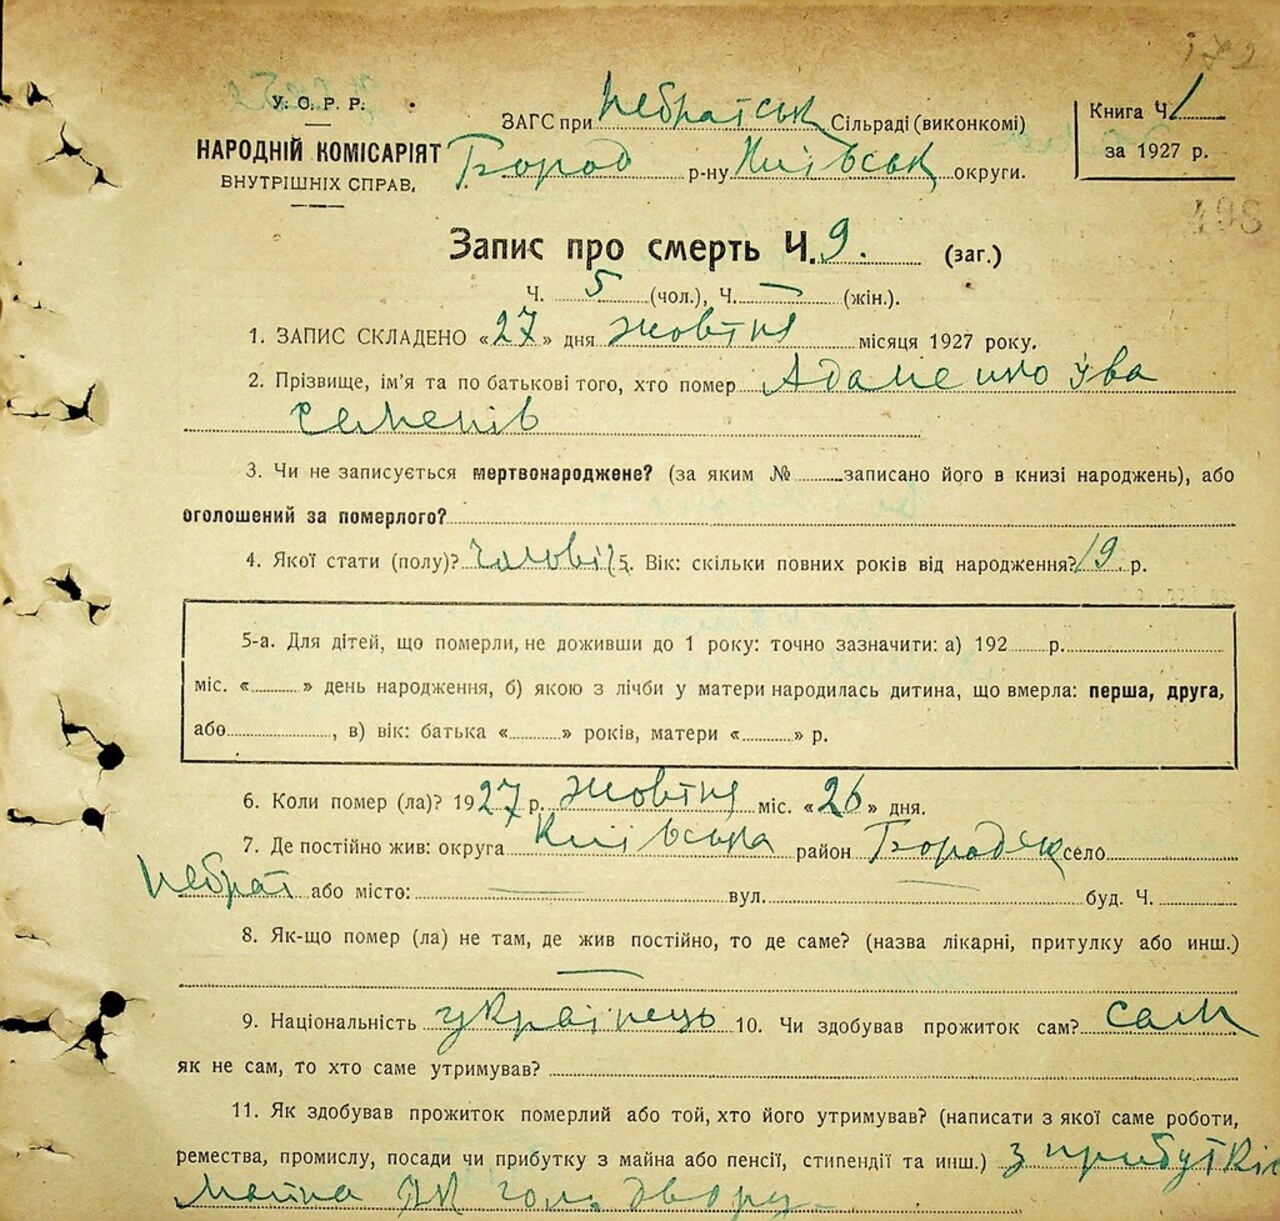 У. С. Р. Р.
НАРОДНІЙ КОМІСАРІЯТ
ВНУТРІШНІХ СПРАВ.
ЗАГС при Небратськ Сільраді (виконкомі)
Бород р-ну Київськ округи.
Книга Ч. 1
за 1927 р.
498
Запис про смерть Ч. 9. (заг.)
Ч. 5 (чол.), Ч. — (жін.).
1. ЗАПИС СКЛАДЕНО «27» дня жовтня місяця 1927 року.
2. Прізвище, ім'я та по батькові того, хто помер Адаменко Ува
Семенів
3. Чи не записується мертвонароджене? (за яким № записано його в книзі народжень), або
оголошений за померлого?
4. Якої стати (полу)? чолові 5. Вік: скільки повних років від народження? 19 р.
5-а. Для дітей, що померли, не доживши до 1 року: точно зазначити: а) 192 р.
міс. « » день народження, б) якою з лічби у матери народилась дитина, що вмерла: перша, друга,
або , в) вік: батька « » років, матери « » р.
6. Коли помер (ла)? 1927 р. жовтня міс. «26» дня.
7. Де постійно жив: округа Київська район Бородяк село
Небрат або місто: — вул. буд. Ч.
8. Як-що помер (ла) не там, де жив постійно, то де саме? (назва лікарні, притулку або инш.)
—
9. Національність українець 10. Чи здобував прожиток сам? сам
як не сам, то хто саме утримував?
11. Як здобував прожиток померлий або той, хто його утримував? (написати з якої саме роботи,
ремества, промислу, посади чи прибутку з майна або пенсії, стипендії та инш.) з прибутків
майна гол. двору